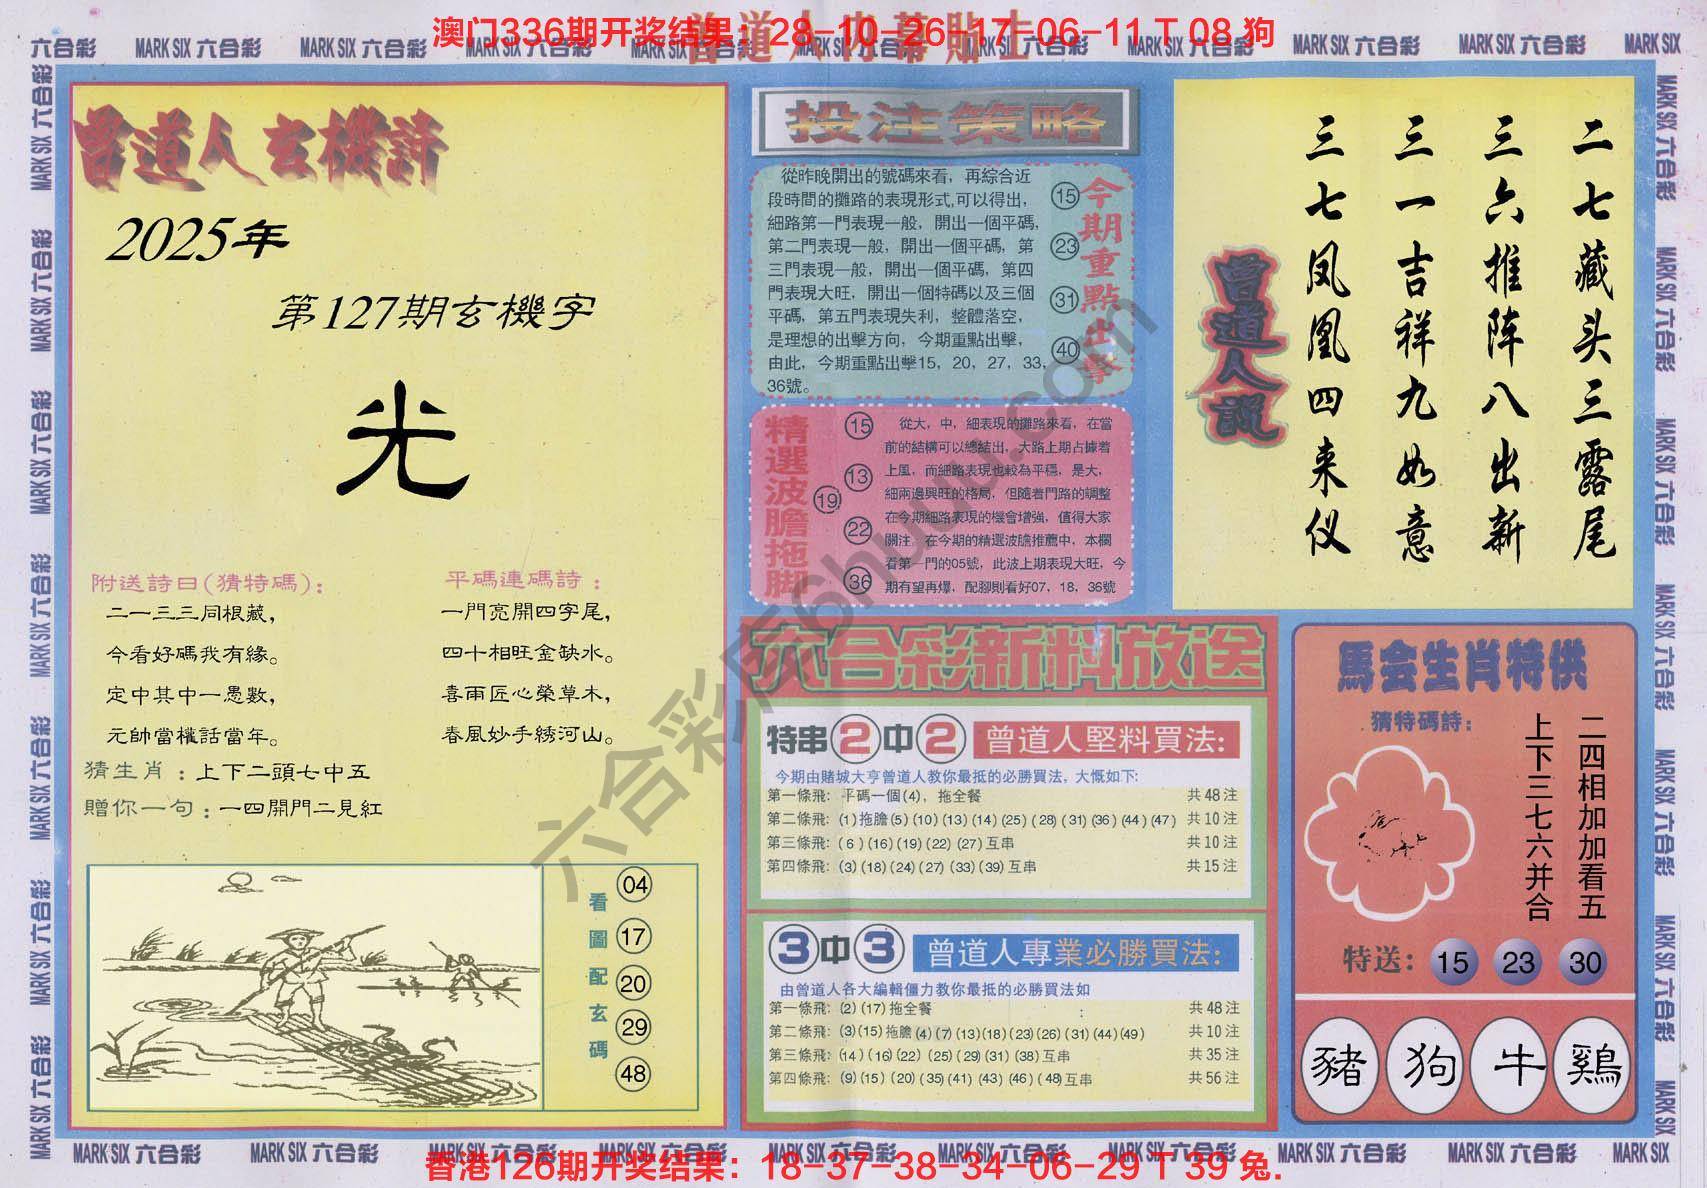 澳门336期开奖结果：28-10-26-17-06-11 T 08 狗
曾道人内幕貼士
六合彩 MARK SIX 六合彩 MARK SIX 六合彩 MARK SIX 六合彩 MARK SIX 六合彩 MARK SIX 六合彩 MARK SIX 六合彩 MARK SIX 六合彩 MARK SIX 六合彩 MARK SIX
曾道人玄機詩
2025年
第127期玄機字
光
附送詩曰(猜特碼)：
二一三三同根藏，
今看好碼我有緣。
定中其中一愚數，
元帥當權話當年。
平碼連碼詩：
一門亮開四字尾，
四十相旺金缺水。
喜雨匠心榮草木，
春風妙手綉河山。
猜生肖：上下二頭七中五
贈你一句：一四開門二見紅
看圖配玄碼
04
17
20
29
48
投注策略
從昨晚開出的號碼來看，再綜合近
段時間的攤路的表現形式,可以得出，
細路第一門表現一般，開出一個平碼，
第二門表現一般，開出一個平碼，第
三門表現一般，開出一個平碼，第四
門表現大旺，開出一個特碼以及三個
平碼，第五門表現失利，整體落空，
是理想的出擊方向，今期重點出擊，
由此，今期重點出擊15，20，27，33，
36號。
今期重點出擊
15
23
31
40
精選波膽拖脚
15
13
19
22
36
從大，中，細表現的攤路來看，在當
前的結構可以總結出，大路上期占據着
上風，而細路表現也較為平穩，是大，
細兩邊興旺的格局，但隨着門路的調整
在今期細路表現的機會增強，值得大家
關注，在今期的精選波膽推薦中，本欄
看第一門的05號，此波上期表現大旺，今
期有望再爆，配腳則看好07，18，36號
六合彩新料放送
特串2中2 曾道人堅料買法:
今期由賭城大亨曾道人教你最抵的必勝買法，大慨如下:
第一條飛: 平碼一個(4)，拖全餐 共48注
第二條飛: (1)拖膽(5)(10)(13)(14)(25)(28)(31)(36)(44)(47) 共10注
第三條飛: (6)(16)(19)(22)(27)互串 共10注
第四條飛: (3)(18)(24)(27)(33)(39)互串 共15注
3中3 曾道人專業必勝買法:
由曾道人各大編輯僵力教你最抵的必勝買法如
第一條飛: (2)(17)拖全餐 共48注
第二條飛: (3)(15)拖膽(4)(7)(13)(18)(23)(26)(31)(44)(49) 共10注
第三條飛: (14)(16)(22)(25)(29)(31)(38)互串 共35注
第四條飛: (9)(15)(20)(35)(41)(43)(46)(48)互串 共56注
二七藏头三露尾
三六推阵八出新
三一吉祥九如意
三七凤凰四来仪
曾道人說
馬会生肖特供
猜特碼詩：
二四相加加看五
上下三七六并合
特送：15 23 30
豬 狗 牛 鷄
六合彩库6huuu.com
MARK SIX 六合彩 MARK SIX 六合彩 MARK SIX 六合彩 MARK SIX 六合彩 MARK SIX 六合彩 MARK SIX 六合彩 MARK SIX 六合彩 MARK SIX 六合彩 MARK SIX 六合彩 MARK SIX
香港126期开奖结果：18-37-38-34-06-29 T 39 兔.